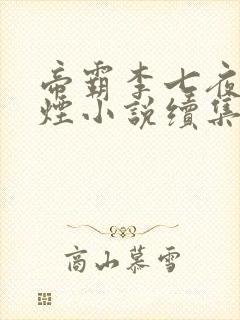 帝霸李七夜
煙小說續集
高山慕雪